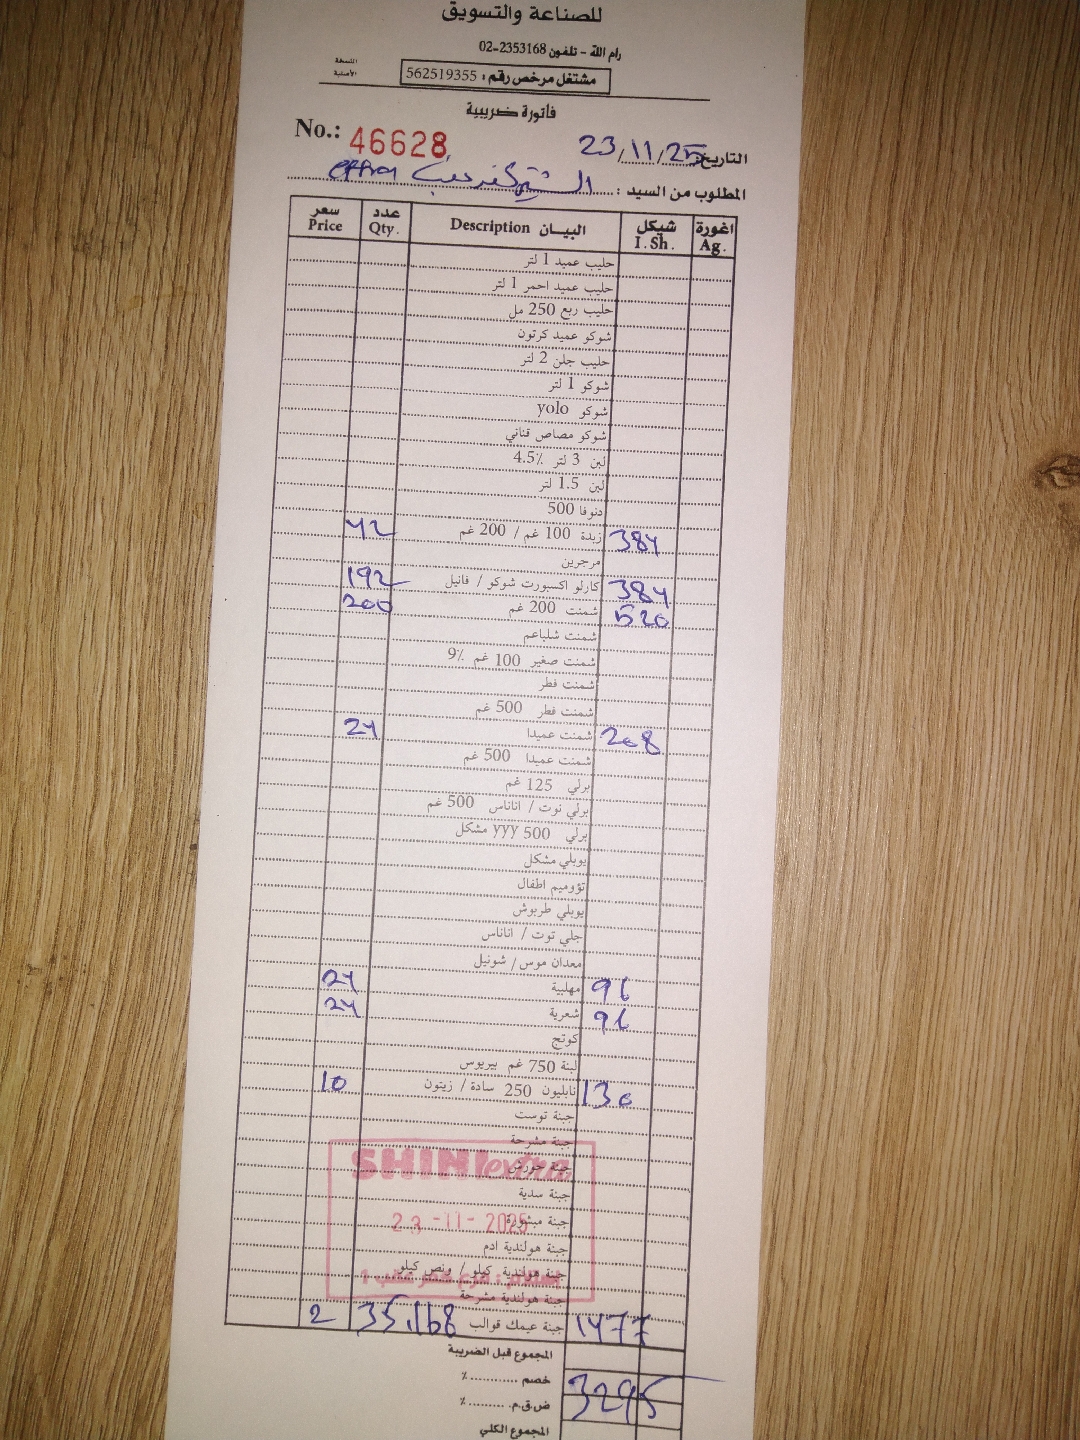 للصناعة والتسويق
رام الله - تلفون 02-2353168
مشتغل مرخص رقم : 562519355
النسخة
الأصلية
فاتورة ضريبية
No.: 46628
التاريخ: 23/11/25
المطلوب من السيد :
سعر Price عدد Qty. البيـان Description شيكل I.Sh. اغورة Ag.
حليب عميد 1 لتر
حليب عميد احمر 1 لتر
حليب ربع 250 مل
شوكو عميد كرتون
حليب جلن 2 لتر
شوكو 1 لتر
شوكو yolo
شوكو مصاص قناني
لبن 3 لتر 4.5%
لبن 1.5 لتر
دنوفا 500
42 زبدة 100 غم / 200 غم 384
مرجرين
192 كارلو اكسبورت شوكو / فانيل 384
200 شمنت 200 غم 520
شمنت شلباعم
شمنت صغير 100 غم 9%
شمنت فطر
شمنت فطر 500 غم
24 شمنت عميدا 208
شمنت عميدا 500 غم
برلي 125 غم
برلي توت / اناناس 500 غم
برلي 500 yyy مشكل
يوبلي مشكل
تؤوميم اطفال
يوبلي طربوش
جلي توت / اناناس
معدان موس / شونيل
24 مهلبية 96
24 شعرية 96
كوتج
لبنة 750 غم بيريوس
10 نابليون 250 سادة / زيتون 130
جبنة توست
جبنة مشرحة
SHINI extra
جبنة حورش
جبنة سدية
جبنة مبشورة
23 -11- 2025
جبنة هولندية ادم
جبنة هولندية كيلو / ونص كيلو
جبنة هولندية مشرحة
2 35.168 جبنة عيمك قوالب 1477
المجموع قبل الضريبة
خصم ............ %
3295
ض.ق.م. ......... %
المجموع الكلي